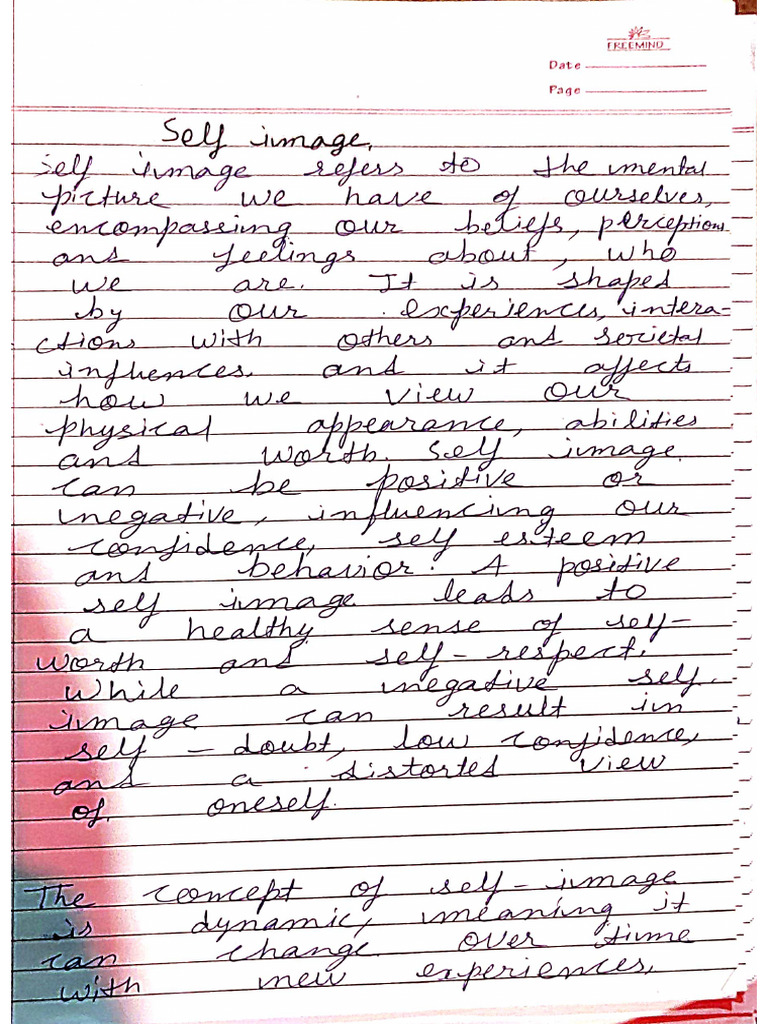 FREEMIND
Date
Page
Self image.
Self image refers to the mental
picture we have of ourselves,
encompassing our beliefs, perceptions
and feelings about, who
we are. It is shaped
by our experiences, intera-
ctions with others and societal
influences. and it affects
how we view our
physical appearance, abilities
and worth. Self image
can be positive or
negative, influencing our
confidence, self esteem
and behavior. A positive
self image leads to
a healthy sense of self-
worth and self-respect.
While a negative self.
image can result in
self - doubt, low confidence,
and a distorted view
of. oneself.
The concept of self-image
is dynamic, meaning it
can change over time
with new experiences,